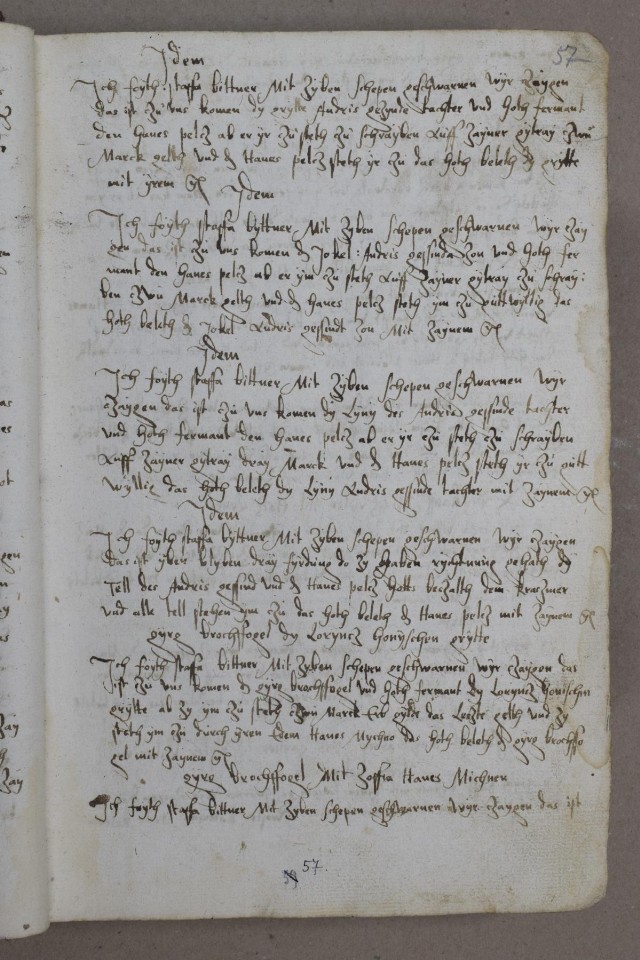 57
Idem
Ich foyth staffa bittner Mit zyben schepen geschwarnen wyr zaygen
das ist zu vns komen dy grytte Andris gesynde tachter vnd hoth fermant
den Hanes pelcz ab er yr zu steth zu schrayben Auff zayner gytray zwu
Marck gelth vnd d Hanes pelcz steth yr zu das hoth beleth dy grytte
mit yrem
Idem
Ich foyth staffa byttner Mit zyben schepen geschwarnen wyr zay
gen das ist zu vns komen d Jokel Andris gessinda zon vnd hoth fer
mant den Hanes pelcz ab er ym zu steth Auff zayner gytray zu schray:
ben zwu Marck gelth vnd d Hanes pelcz steth ym zu guttwyllig das
hoth beleth d Jokel Andris gessindt zon Mit zaynem
Idem
Ich foyth staffa bittner Mit zyben schepen geschwarnen wyr
czaygen das ist czu vns komen dy Lyny des Andris gessinde tachter
vnd hoth fermant den Hanes pelcz ab er yr czu steth czu schrayben
Auff zayner gytray dray Marck vnd d Hanes pelcz steth yr czu gutt
wyllig das hoth beleth dy Lyny Andris gessinde tachter mit zaynem
Idem
Ich foyth staffa byttner Mit zyben schepen geschwarnen wyr czaygen
das ist yber blyben dray fyrdung do zy haben rychtunng gehath dy
tell des Andris gessind vnd d Hanes pelcz hotts beczalth dem kraczmer
vnd alle tell stehen ym czu das hoth beleth d Hanes pelcz mit zaynem
gyrg brochffogel dy Loryncz Honyschen grytte
Ich foyth staffa bittner Mit zyben schepen geschwarnen wyr czaygen das
ist zu vns komen d gyrg brochffogel vnd hoth fermant dy Loryncz Honischin
grytte ab zy ym zu steth czwu Marck das Leczte gelth vnd zy
steth ym zu durch yren Edem Hanes Mychno das hoth beleth d gyrg brochffo
gel mit zaynem
gyrg brochffogel Mit Zoffia Hanes Michnen
Ich foyth staffa bittner Mit zyben schepen geschwarnen wyr czaygen das ist
57